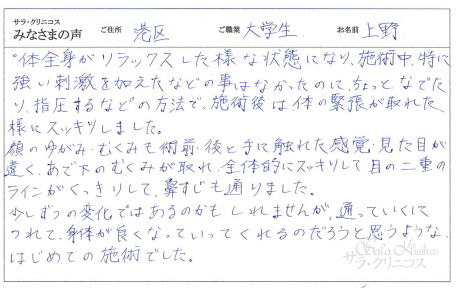 サラ・クリニコス
みなさまの声
ご住所 港区 ご職業 大学生 お名前 上野
"体全身がリラックスした様な状態になり、施術中、特に
強い刺激を加えたなどの事はなかったのに、ちょっとなでた
り、指圧するなどの方法で、施術後は体の緊張が取れた
様にスッキリしました。
顔のゆがみ・むくみも術前・後と手に触れた感覚・見た目が
違く、あご下のむくみが取れ、全体的にスッキリして目の二重の
ラインがくっきりして、鼻すじも通りました。
少しずつの変化ではあるのかもしれませんが、通っていくに
つれて、身体が良くなっていってくれるのだろうと思うような、
はじめての施術でした。
Sala Klinikos
サラ・クリニコス